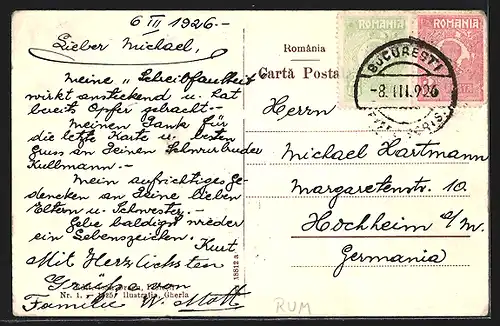 6 III 1926.-
Lieber Michael,
meine „Schreibfaulheit
wirkt ansteckend u. hat
bereits Opfer gebracht.-
Meinen Dank für
die letzte Karte u. besten
Gruss an Deinen Schwurbruder
Kullmann.-
Mein aufrichtiges Ge-
dencken an Deine lieben
Eltern u. Schwester.-
Gebe baldigst wieder
ein Lebenszeichen.
Kurt
Mit Herzlichsten
Grüße von
Familie W. Mott
Nr. 1. 1925 Ilustratia, Gherla
18812 a
România
Carta Posta
ROMANIA
ROMANIA
BUCURESTI
-8.III.926
Herrn
Michael Hartmann
Margaretenstr. 10
Hochheim a/M.
Germania
RUM